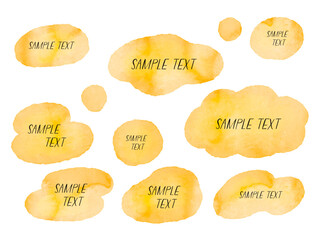 SAMPLE TEXT
SAMPLE TEXT
SAMPLE
TEXT
SAMPLE TEXT
SAMPLE
TEXT
SAMPLE
TEXT
SAMPLE
TEXT
SAMPLE
TEXT
SAMPLE TEXT